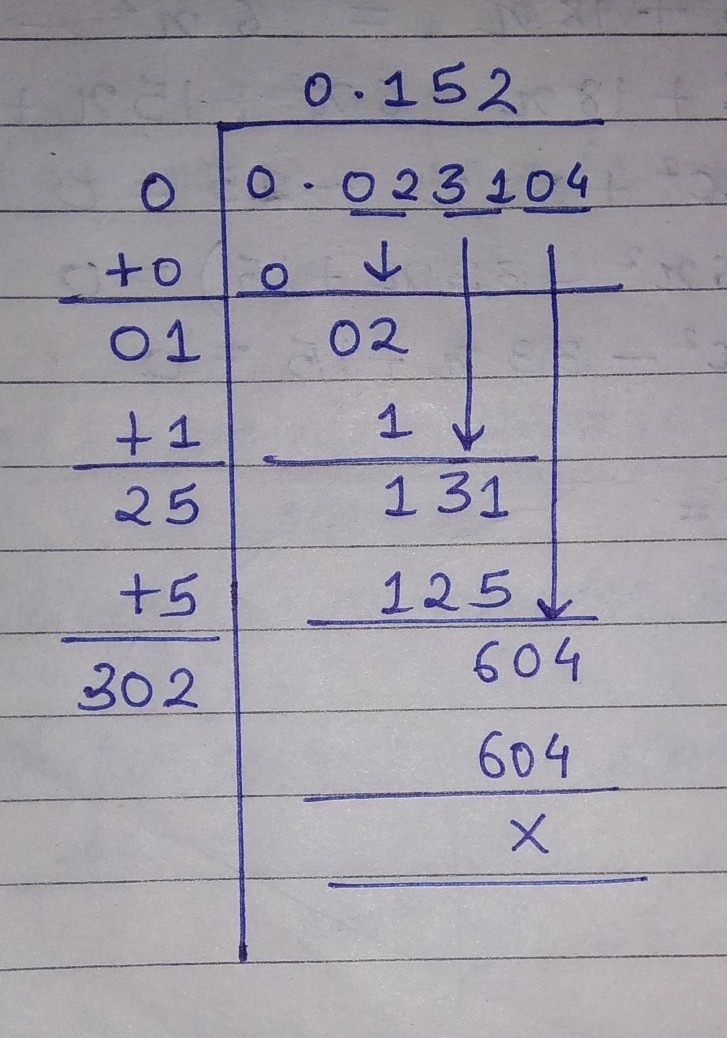 0.152
0 0.023104
+0 0 ↓
01 02
+1 1
25 131
+5 125
302 604
604
×